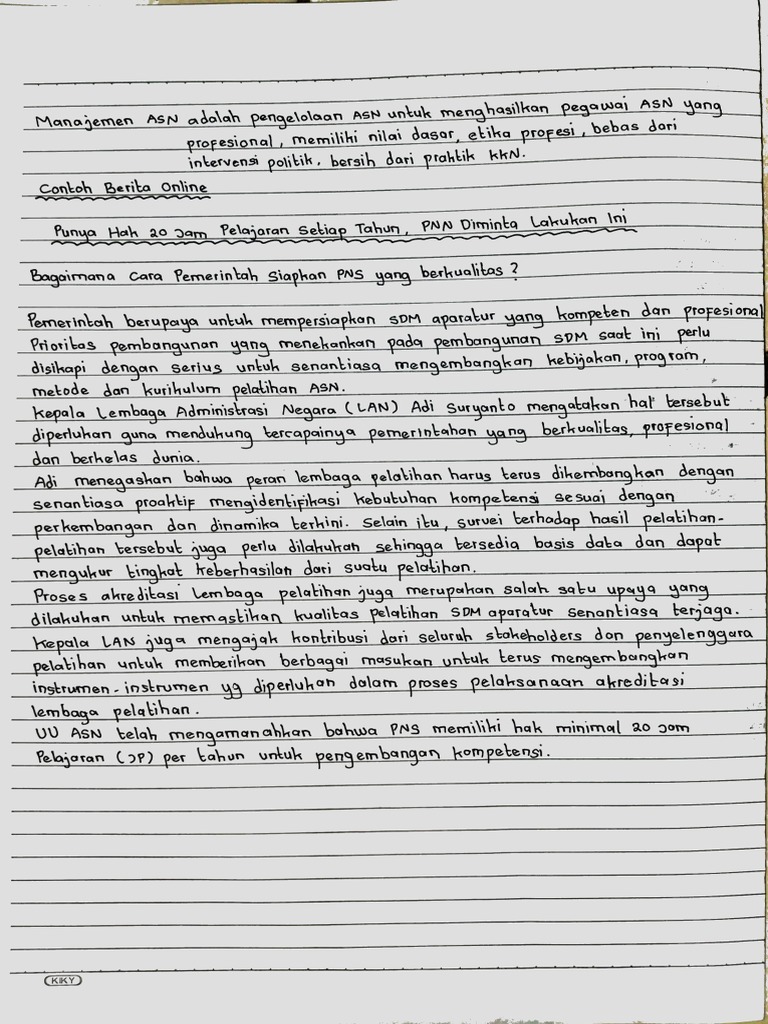 Manajemen ASN adalah pengelolaan ASN untuk menghasilkan pegawai ASN yang
profesional, memiliki nilai dasar, etika profesi, bebas dari
intervensi politik, bersih dari praktik KKN.
Contoh Berita Online
Punya Hak 20 Jam Pelajaran Setiap Tahun, PNN Diminta Lakukan Ini
Bagaimana Cara Pemerintah Siapkan PNS yang berkualitas?
Pemerintah berupaya untuk mempersiapkan SDM aparatur yang kompeten dan profesional
Prioritas pembangunan yang menekankan pada pembangunan SDM saat ini perlu
disikapi dengan serius untuk senantiasa mengembangkan kebijakan, program,
metode dan kurikulum pelatihan ASN.
Kepala Lembaga Administrasi Negara (LAN) Adi Suryanto mengatakan hal tersebut
diperlukan guna mendukung tercapainya pemerintahan yang berkualitas, profesional
dan berkelas dunia.
Adi menegaskan bahwa peran lembaga pelatihan harus terus dikembangkan dengan
senantiasa proaktif mengidentifikasi kebutuhan kompetensi sesuai dengan
perkembangan dan dinamika terkini. Selain itu, survei terhadap hasil pelatihan-
pelatihan tersebut juga perlu dilakukan sehingga tersedia basis data dan dapat
mengukur tingkat keberhasilan dari suatu pelatihan.
Proses akreditasi lembaga pelatihan juga merupakan salah satu upaya yang
dilakukan untuk memastikan kualitas pelatihan SDM aparatur senantiasa terjaga.
Kepala LAN juga mengajak kontribusi dari seluruh stakeholders dan penyelenggara
pelatihan untuk memberikan berbagai masukan untuk terus mengembangkan
instrumen-instrumen yg diperlukan dalam proses pelaksanaan akreditasi
lembaga pelatihan.
UU ASN telah mengamanahkan bahwa PNS memiliki hak minimal 20 jam
Pelajaran (JP) per tahun untuk pengembangan kompetensi.
KIKY